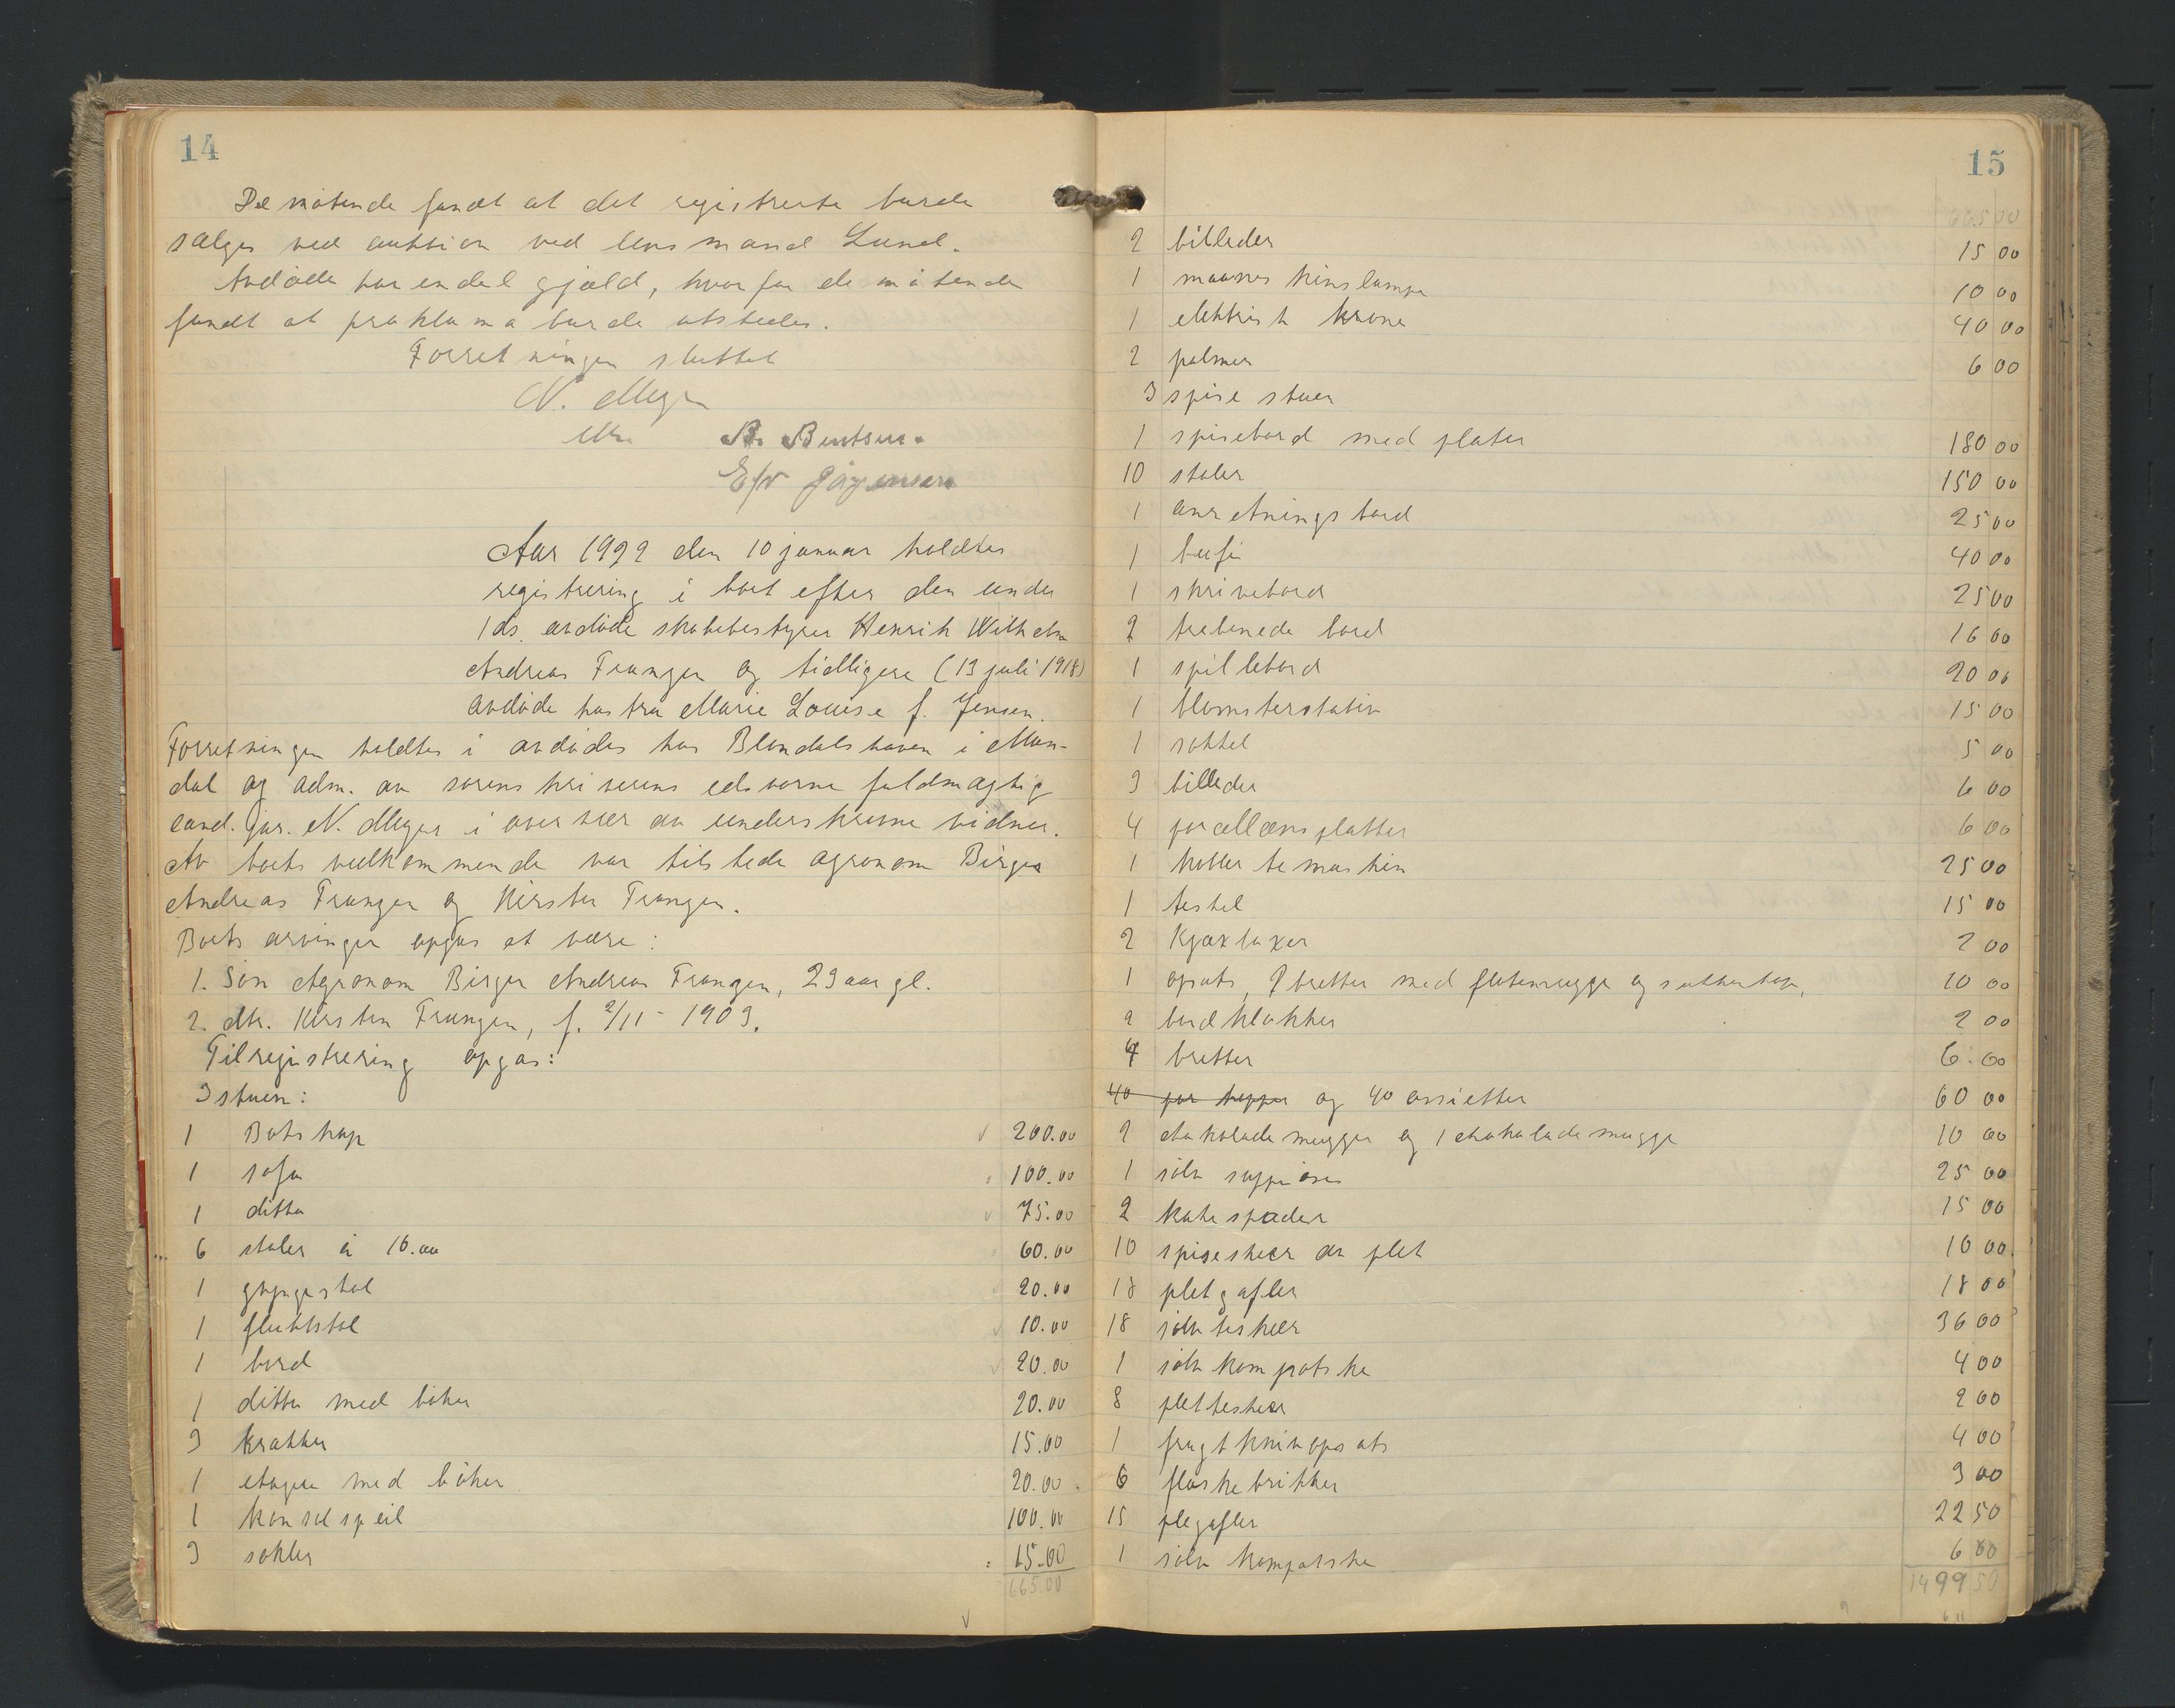 14
De møtende fandt at det registrerte burde
sælges ved auktion ved lensmand Lund.
Avdøde har endel gjæld, hvorfor de møtende
fandt at proklama burde utstedes.
Forretningen sluttet
N. Meyer
Br. Bentsen.
Jørgensen
Aar 1922 den 10 januar holdtes
registrering i boet efter den under
1 ds. avdøde skolebestyrer Henrik Wilhelm
Andreas Frangen og tidligere (13 juli 1918)
avdøde hustru Marie Louise f. Jensen.
Forretningen holdtes i avdødes hus Blondalshaven i Man-
dal og adm. av sorenskriverens edsvorne fuldmægtig
cand. jur. N. Meyer i overvær av underskrevne vidner.
Av boets vedkommende var tilstede agronom Birger
Andreas Frangen og Kirsten Frangen.
Boets arvinger opgas at være:
1. Søn Agronom Birger Andreas Frangen, 23 aar gl.
2. dtr. Kirsten Frangen, f. 2/11 - 1903.
Til registrering opgas:
I stuen:
1 Bokskap 200.00
1 sofa 100.00
1 ditto 75.00
6 stoler à 10.00 60.00
1 gyngestol 20.00
1 fluktstol 10.00
1 bord 20.00
1 ditto med bøker 20.00
3 krakker 15.00
1 etagere med bøker 20.00
1 konsolspeil 100.00
3 sokler 15.00
665.00
15
665 00
2 billeder 15 00
1 maaneskinslampe 10 00
1 elektrisk krone 40 00
2 palmer 6 00
I spisestuen
1 spisebord med plater 180 00
10 stoler 150 00
1 anretningsbord 25 00
1 bufe 40 00
1 skrivebord 25 00
2 trebenede bord 16 00
1 spillebord 20 00
1 blomsterstativ 15 00
1 sokkel 5 00
3 billeder 6 00
4 porcellænsplatter 6 00
1 kobber temaskin 25 00
1 teskel 15 00
2 Kjaxbaxer 2 00
1 opsats, 2 bretter med fløtemugge og sukkerkop, 10 00
2 bordklokker 2 00
4 bretter 6 00
40 par kopper og 40 assietter 60 00
2 chokolademugger og 1 chokolademugge 10 00
1 sølv suppeøse 25 00
2 kakespader 15 00
10 spiseskeer av plet 10 00
18 pletgafler 18 00
18 sølv teskeer 36 00
1 sølv kompotske 4 00
8 pletteskeer 2 00
1 frugtknivopsats 4 00
6 flaskebrikker 3 00
15 plegafler 22 50
1 sølv kompotske 6 00
1499 50